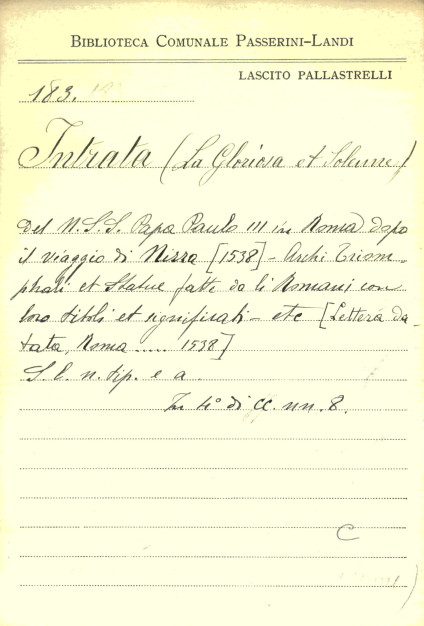 BIBLIOTECA COMUNALE PASSERINI-LANDI
LASCITO PALLASTRELLI
183.
Intrata (La Gloriosa et Solenne)
del N.S.S. Papa Paulo III in Roma dopo
il viaggio di Nizza [1538] - Archi Triom-
phali et Statue fatte da li Romani con
loro titoli et significati - etc [Lettera da-
tata, Roma ..... 1538]
S. l. n. tip. e a.
In 4° di cc. nn. 8.
C